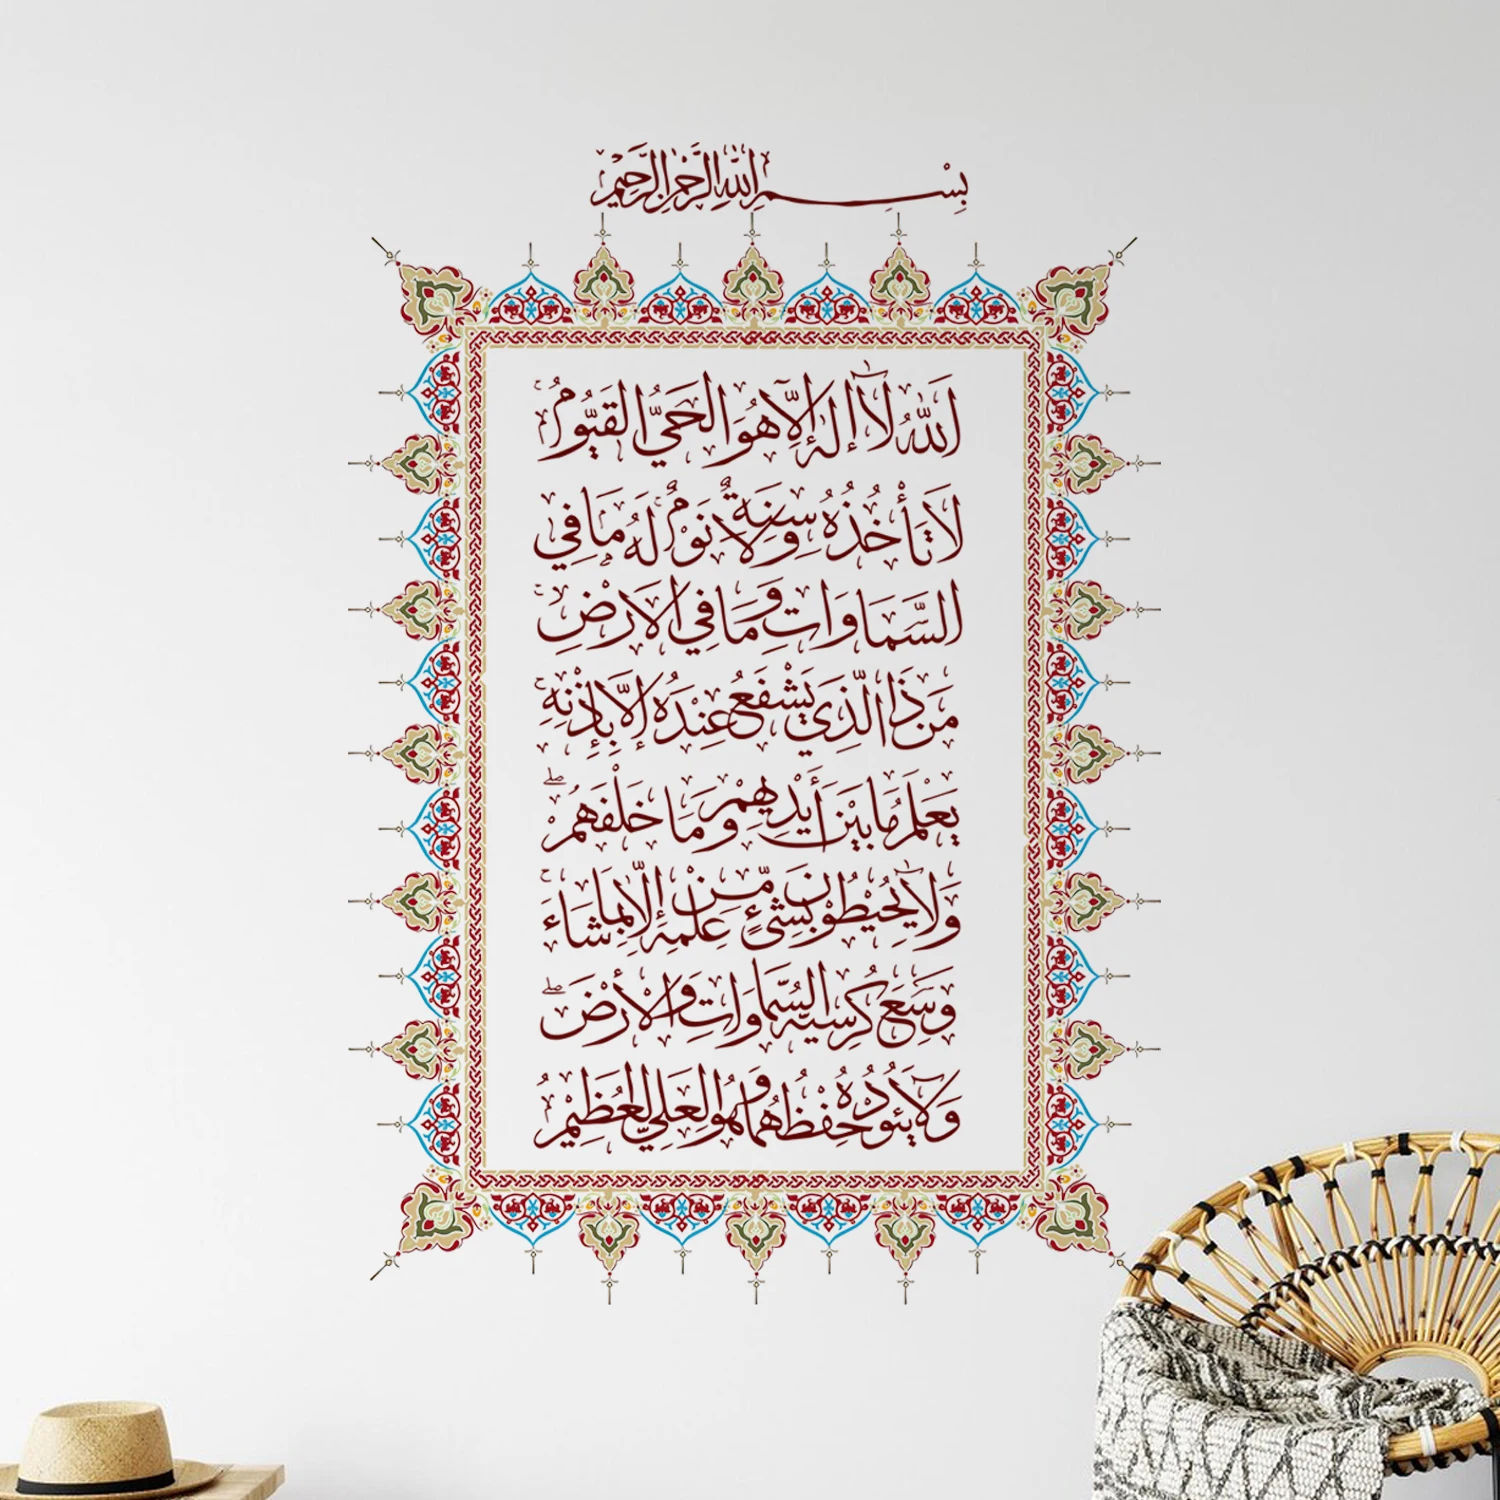 بِسْمِ اللَّهِ الرَّحْمَنِ الرَّحِيمِ
اَللَّهُ لَآ إِلَهَ إِلَّا هُوَ الْحَيُّ الْقَيُّومُ
لَا تَأْخُذُهُ سِنَةٌ وَلَا نَوْمٌ لَهُ مَا فِي
السَّمَاوَاتِ وَمَا فِي الْأَرْضِ
مَنْ ذَا الَّذِي يَشْفَعُ عِنْدَهُ إِلَّا بِإِذْنِهِ
يَعْلَمُ مَا بَيْنَ أَيْدِيهِمْ وَمَا خَلْفَهُمْ ۖ
وَلَا يُحِيطُونَ بِشَيْءٍ مِّنْ عِلْمِهِ إِلَّا بِمَا شَاءَ
وَسِعَ كُرْسِيُّهُ السَّمَاوَاتِ وَالْأَرْضَ ۖ
وَلَا يَئُودُهُ حِفْظُهُمَا وَهُوَ الْعَلِيُّ الْعَظِيمُ